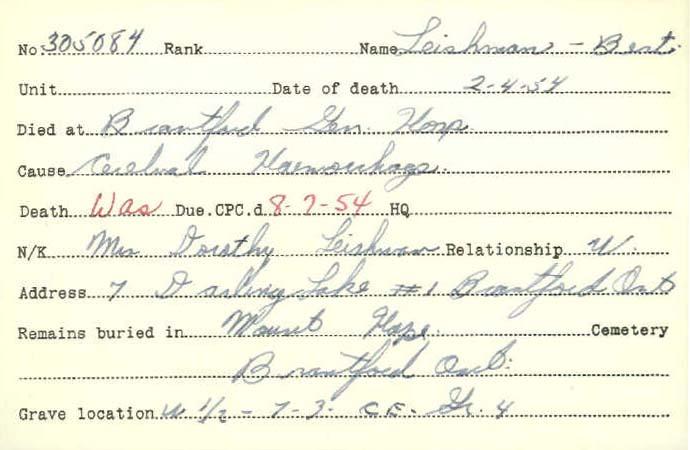 No. 305084 Rank Name Leishman - Bert.
Unit Date of death 2-4-54
Died at Brantford Gen. Hosp.
Cause Cerebral Haemorrhage.
Death Was Due. CPC.d. 8-7-54 HQ
N/K Mrs Dorothy Leishman Relationship W.
Address 7 Darling Lake #1 Brantford Ont
Remains buried in Mount Hope. Cemetery
Brantford Ont.
Grave location W 1/2 - 7-3- C.E. Gr. 4